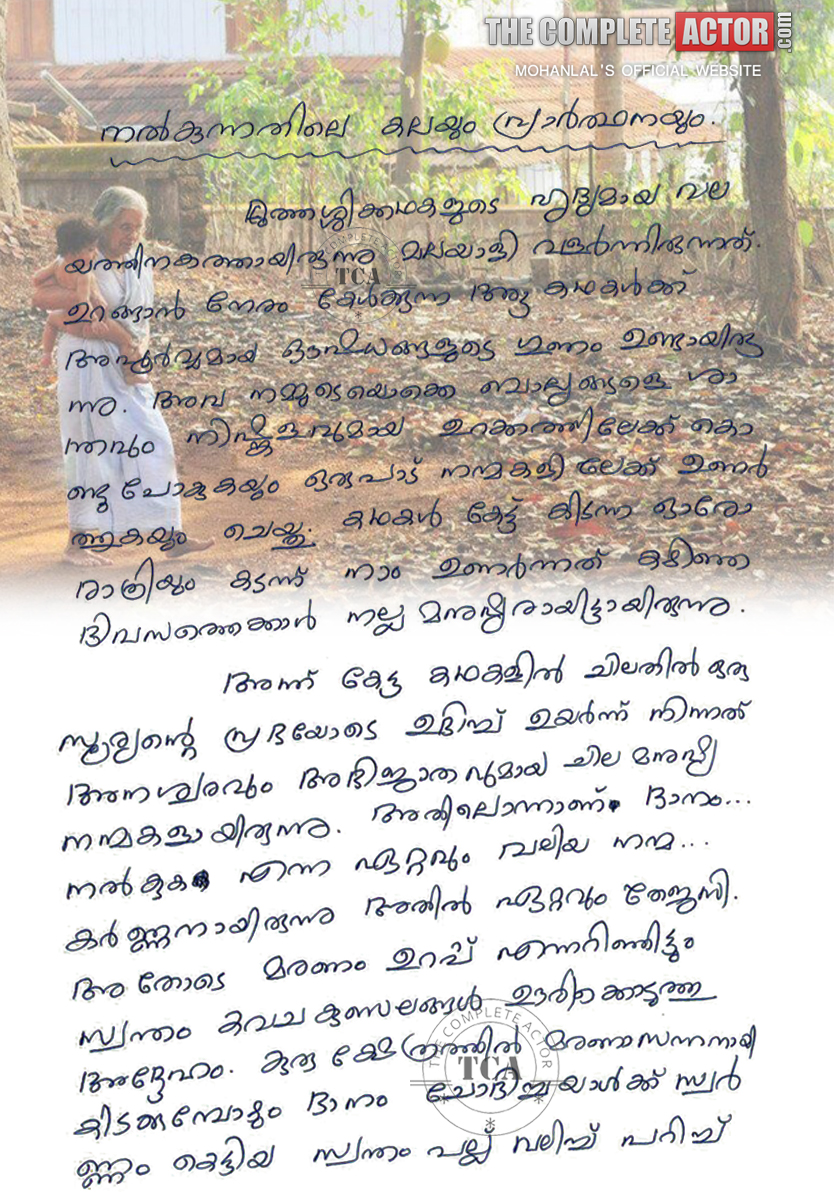 THE COMPLETE ACTOR.com
MOHANLAL'S OFFICIAL WEBSITE
നൽകുന്നതിലെ കലയും പ്രാർത്ഥനയും.
മുത്തശ്ശിക്കഥകളുടെ ഹൃദ്യമായ വല
യത്തിനകത്തായിരുന്നു മലയാളി വളർന്നിരുന്നത്.
ഉറങ്ങാൻ നേരം കേൾക്കുന്ന ആ കഥകൾക്ക്
അപൂർവ്വമായ ഔഷധങ്ങളുടെ ഗുണം ഉണ്ടായിരു
ന്നു. അവ നമ്മുടെയൊക്കെ ബാല്യങ്ങളെ ശാ
ന്തവും നിഷ്കളവുമായ ഉറക്കത്തിലേക്ക് കൊ
ണ്ടു പോകുകയും ഒരുപാട് നന്മകളിലേക്ക് ഉണർ
ത്തുകയും ചെയ്തു. കഥകൾ കേട്ട് കിടന്ന ഓരോ
രാത്രിയും കടന്ന് നാം ഉണർന്നത് കഴിഞ്ഞ
ദിവസത്തെക്കാൾ നല്ല മനുഷ്യരായിട്ടായിരുന്നു.
അന്ന് കേട്ട കഥകളിൽ ചിലതിൽ ഒരു
സൂര്യന്റെ പ്രഭയോടെ ഉദിച്ച് ഉയർന്ന് നിന്നത്
അനശ്വരവും അഭിജാതവുമായ ചില മനുഷ്യ
നന്മകളായിരുന്നു. അതിലൊന്നാണ് ദാനം...
നൽകുക എന്ന ഏറ്റവും വലിയ നന്മ...
കർണ്ണനായിരുന്നു അതിൽ ഏറ്റവും തേജസി.
അതോടെ മരണം ഉറപ്പ് എന്നറിഞ്ഞിട്ടും
സ്വന്തം കവച കുണ്ഡലങ്ങൾ ഊരിക്കൊടുത്തു
അദ്ദേഹം. കുരുക്ഷേത്രത്തിൽ മരണാസന്നനായി
കിടക്കുമ്പോഴും ദാനം ചോദിച്ചയാൾക്ക് സ്വർ
ണ്ണം കെട്ടിയ സ്വന്തം പല്ല് വലിച്ച് പറിച്ച്
THE COMPLETE ACTOR
TCA